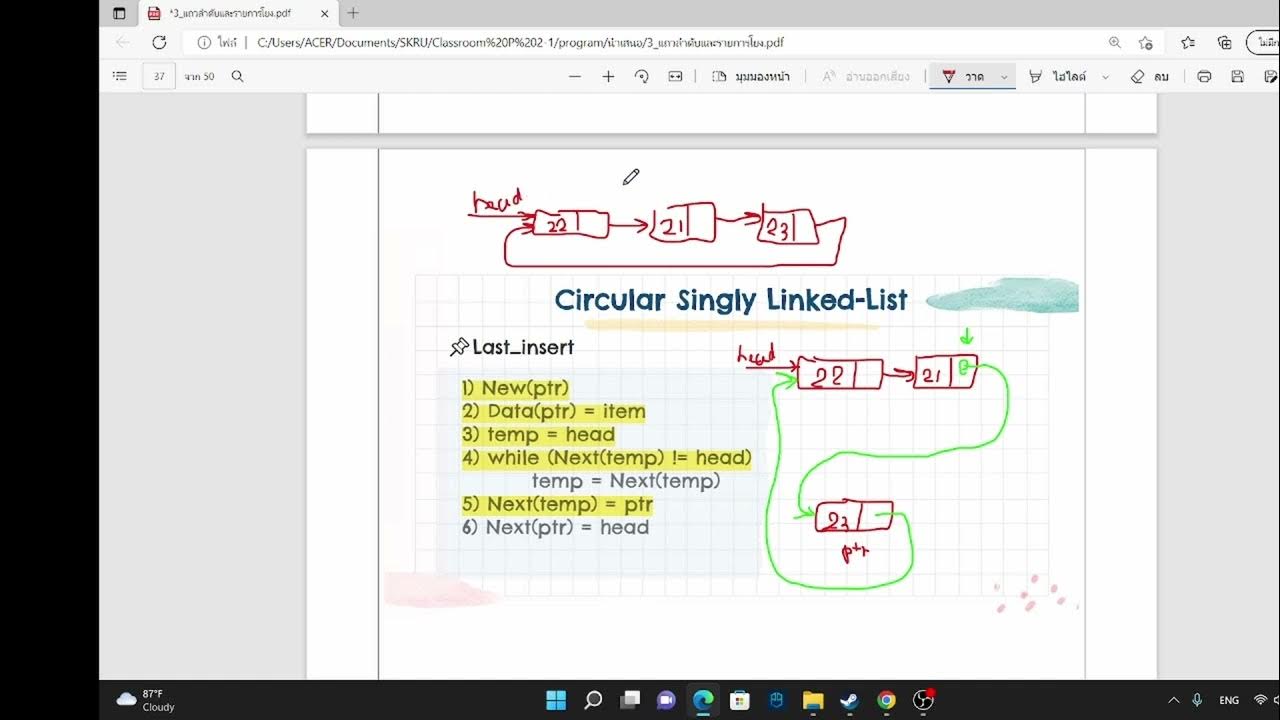 *3_แถวลำดับและรายการโยง.pdf
ไฟล์ C:/Users/ACER/Documents/SKRU/Classroom%20P%202-1/program/นำเสนอ/3_แถวลำดับและรายการโยง.pdf
37 จาก 50 มุมมองหน้า อ่านออกเสียง วาด ไฮไลต์ ลบ
head
22 21 23
Circular Singly Linked-List
Last_insert
1) New(ptr)
2) Data(ptr) = item
3) temp = head
4) while (Next(temp) != head)
temp = Next(temp)
5) Next(temp) = ptr
6) Next(ptr) = head
head
22 21
23
ptr
87°F
Cloudy
ENG